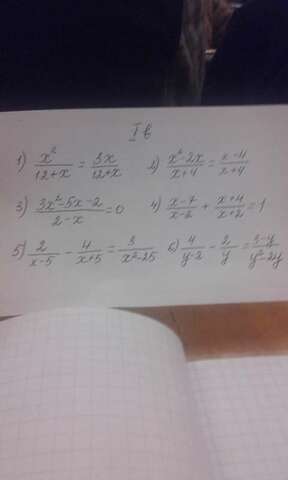 I в
1) x²/(12+x) = 3x/(12+x) 2) (x²-2x)/(x+4) = (x-4)/(x+4)
3) (3x²-5x-2)/(2-x) = 0 4) (x-7)/(x-2) + (x+4)/(x+2) = 1
5) 2/(x-5) - 4/(x+5) = 3/(x²-25) 6) 4/(y-2) - 2/y = (3-y)/(y²-2y)